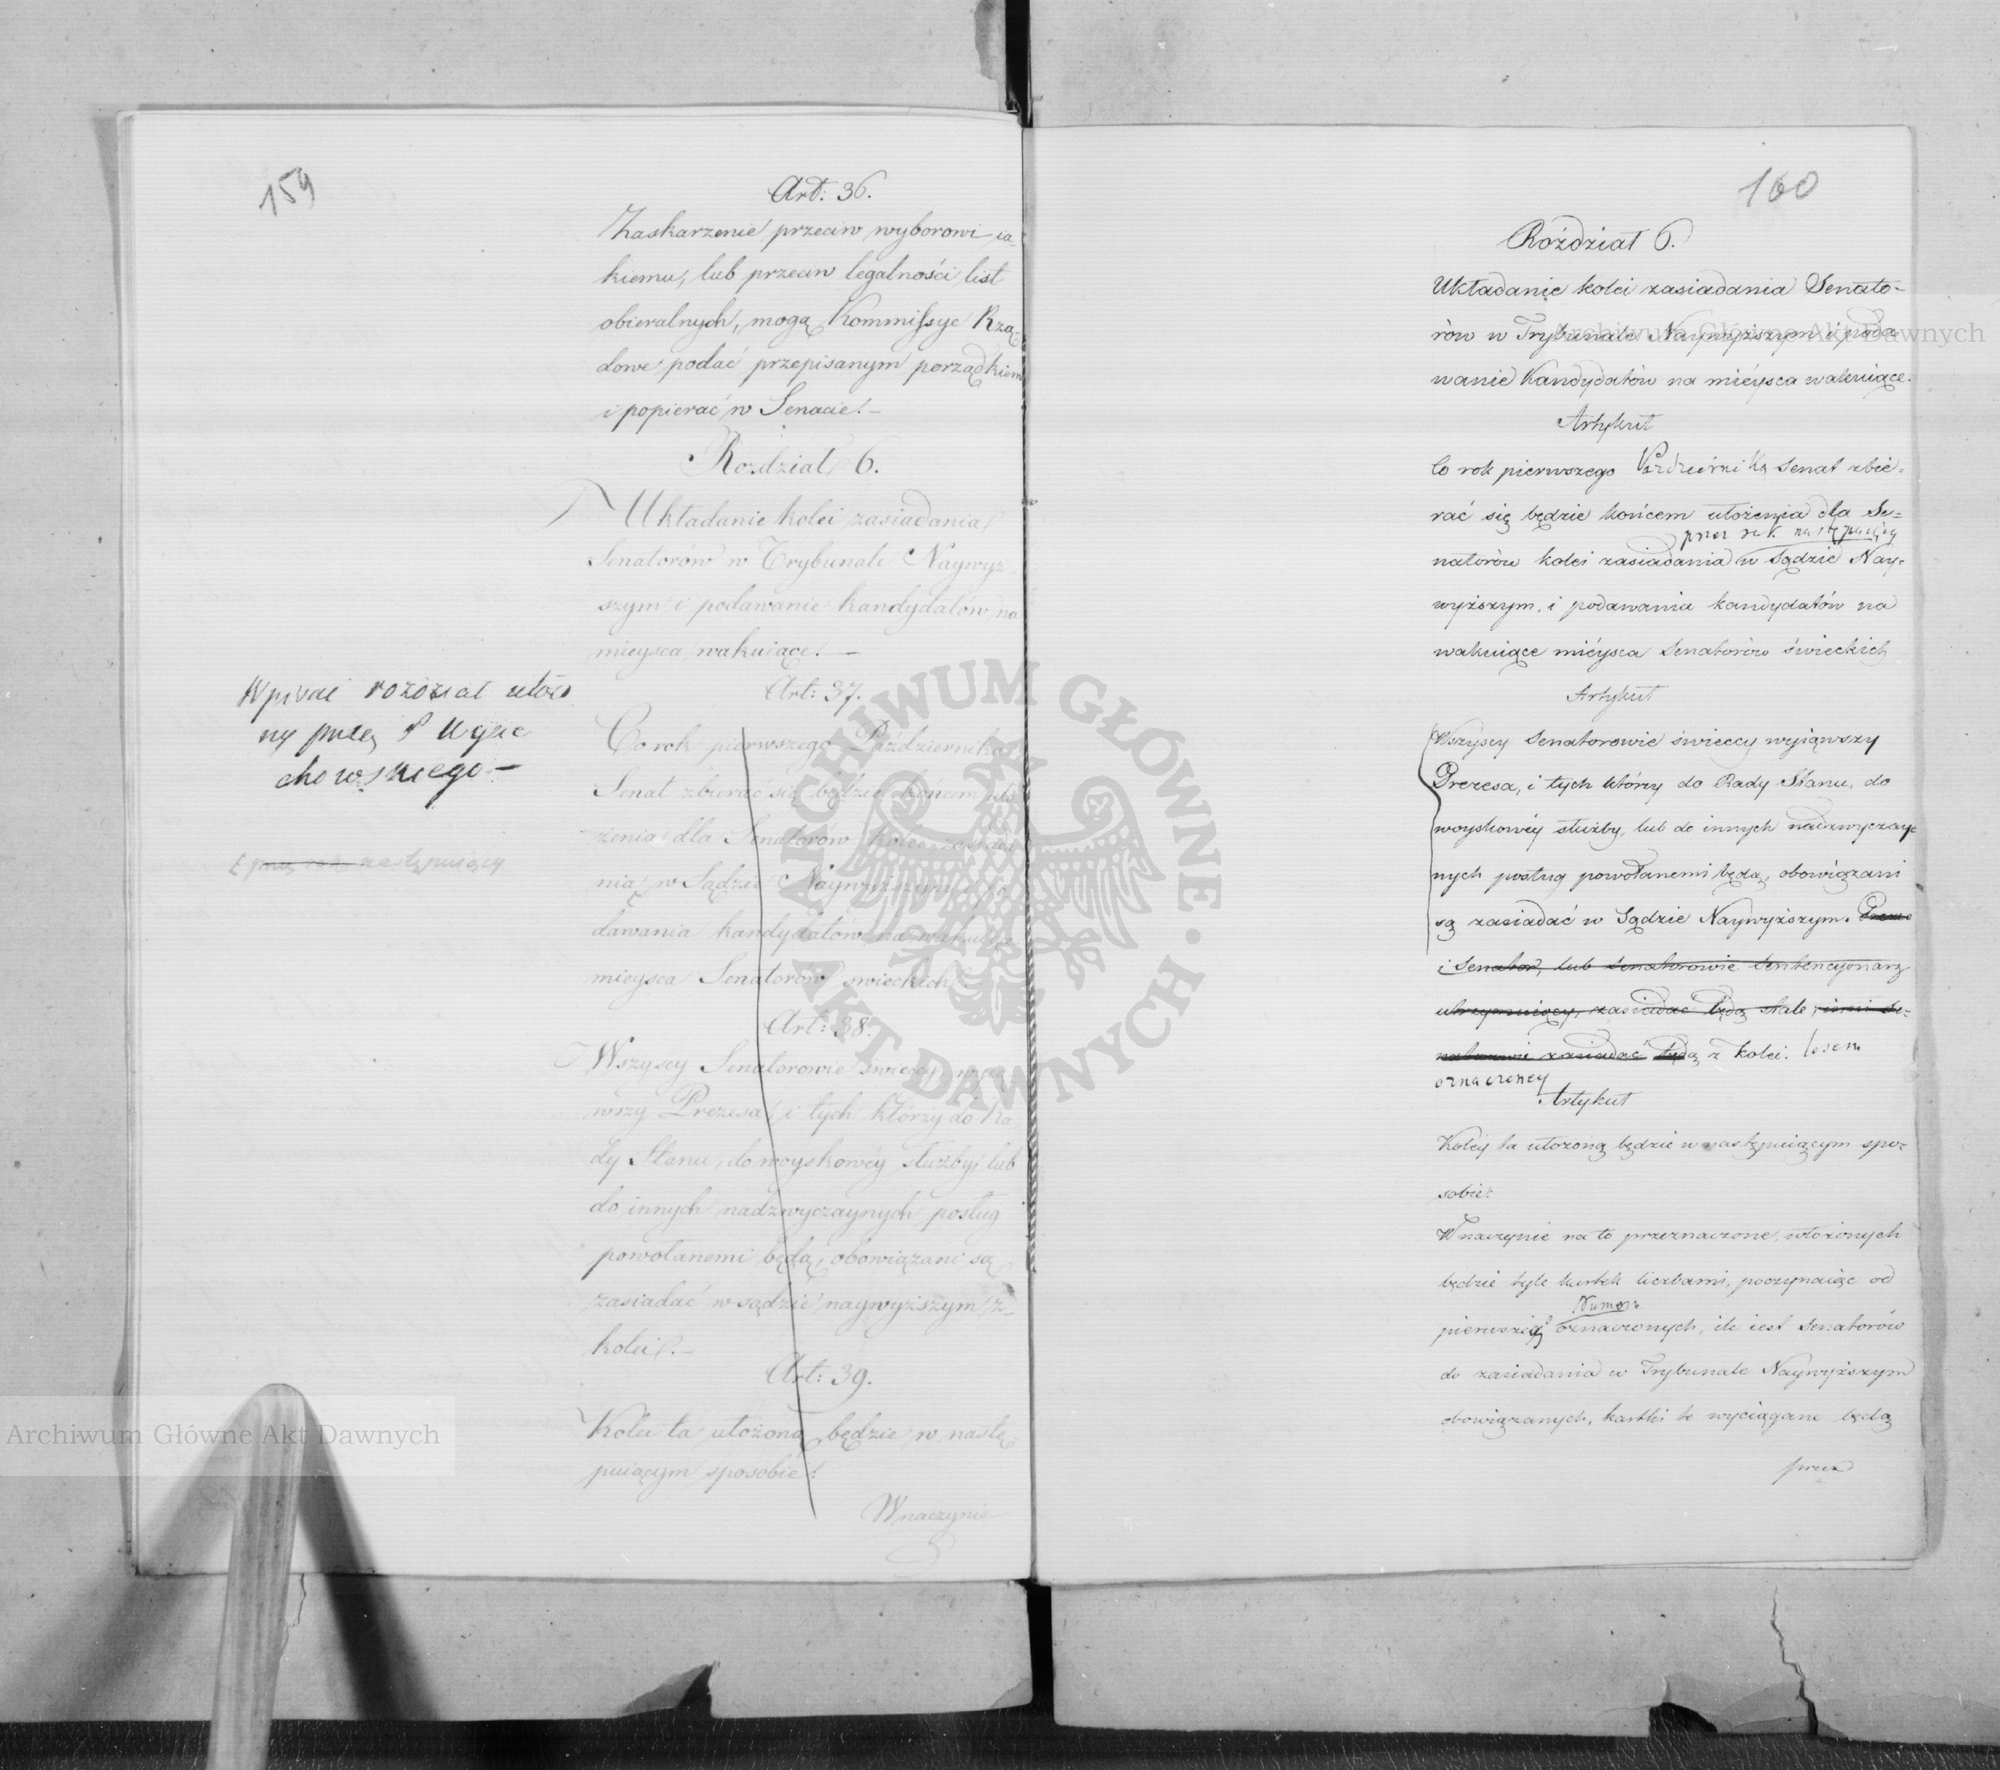 159
Art: 36.
Zaskarzenie przeciw wyborowi ia-
kiemu, lub przeciw legalności list
obieralnych, mogą Kommissye Rzą-
dowe podać przepisanym porządkiem
i popierać w Senacie.—
Rozdział 6.
Układanie kolei zasiadania
Senatorów w Trybunale Naywyż-
szym i podawanie kandydatów na
mieysca wakuiące.—
Art: 37.
Co rok pierwszego Października
Senat zbierać się będzie końcem uło-
żenia dla Senatorów kolei zasiada-
nia w Sądzie Naywyższym i po-
dawania kandydatów na wakuiące
mieysca Senatorów swieckich.
Art: 38.
Wszyscy Senatorowie swieccy wyią-
wszy Prezesa, i tych którzy do Ra-
dy Stanu, do woyskowéy służby, lub
do innych nadzwyczaynych posług
powołanemi będą, obowiązani są
zasiadać w sądzie naywyższym z-
kolei.—
Art: 39.
Kolei ta ułożoną będzie w nastę-
puiącym sposobie:
Wnaczynie
Wpisać rozdział ułożo
ny przez P Wyie
chowskiego—
przez rok następuiący
160
Roździał 6.
Układanie kolei zasiadania Senato-
rów w Trybunale Naywyższym i poda-
wanie Kandydatów na mieysca wakuiące.
Artykuł
Co rok pierwszego Październik Senat zbie-
rać się będzie końcem ułożenia dla Se-
przez rok następuiący
natorów kolei zasiadania w Sądzie Nay-
wyższym, i podawania kandydatów na
wakuiące miéysca Senatorów świeckich
Artykuł
Wszyscy Senatorowie świeccy wyiąwszy
Prezesa, i tych którzy do Rady Stanu, do
woyskowéy służby, lub do innych nadzwyczay-
nych posług powołanemi będą, obowiązani
są zasiadać w Sądzie Naywyższym. Prezes
i Senator, lub Senatorowie Sentencyonarz
utrzymuiący, zasiadać będą stale, inni Se-
natorowie zasiadać będą z kolei. losem
oznaczoney
Artykuł
Koléy ta ułożoną będzie w następuiącym spo-
sobie:
W naczynie na to przeznaczone, włożonych
będzie tyle kartek liczbami, poczynaiąc od
Numeru
pierwszégo oznaczonych, ile iest Senatorów
do zasiadania w Trybunale Naywyższym
obowiązanych, kartki te wyciągane będą
przez
Archiwum Główne Akt Dawnych
Archiwum Główne Akt Dawnych
ARCHIWUM GŁÓWNE • AKT DAWNYCH •